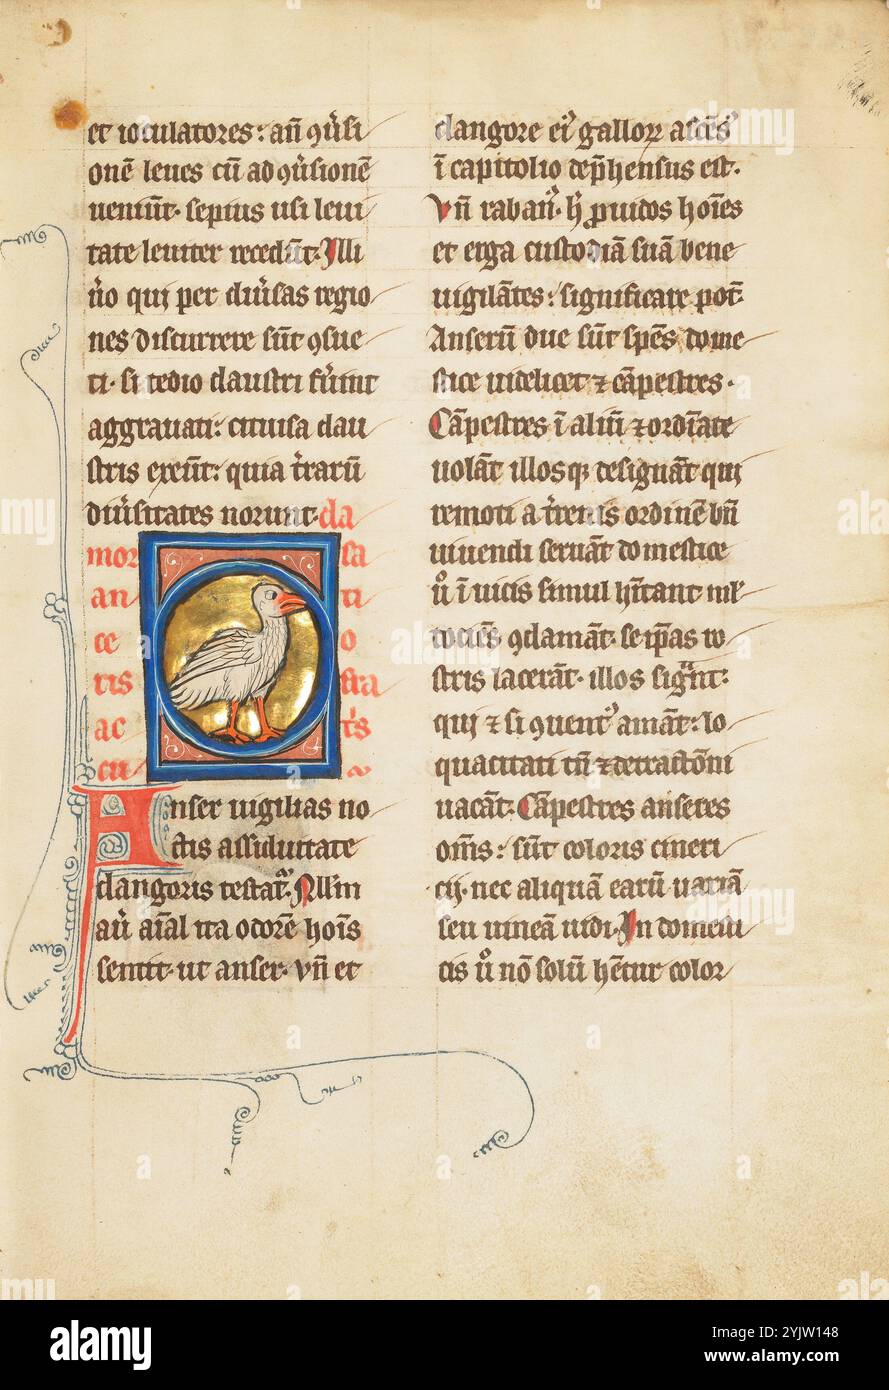 et ioculatores: an̄ ꝯũsi
onē leues cū ad ꝯũsionē
ueniūt. sepius usi leui
tate leuiter recedūt. Illi
ũo qui per diũsas regio
nes discurrere sūt ꝯsue
ti. si tedio claustri fũint
aggrauati: citius a clau
stris exeūt: quia t̃rarū
diũsitates norunt. da
mor sa
an ti
ce o
ris stra
ac t̃s
cu
Anser uigilias no
ctis assiduitate
clangoris testat᷑. Nllm
aũ aīal ita odorē hoīs
sentit. ut anser. vn̄ et
clangore ei᷒ galloꝝ ascēs᷒
ī capitolio dep̄hensus est.
Vn̄ raban᷒. h̄ ꝓuidos hoīes
et erga custodiā suā bene
uigilātes: significare pot̄.
Anserū due sūt sp̄es dome
stice uidelicet ⁊ cāpestres.
Cāpestres ī altū ⁊ ordīate
uolāt illosqꝫ designāt qui
remoti a t̃renis ordinē bn̄
uiuendi seruāt domestice
u̾ ī uicis simul hītant ml᷒
tociēs ꝯclamāt. se ip̄as ro
stris lacerāt. illos sig᷒nt:
qui ⁊ si ꝯuent᷒ amāt: lo
quacitati tn̄ ⁊ detractōni
uacāt. Cāpestres anseres
om̄s: sūt coloris cineri
cij. nec aliquā earū uariā
seu uineā uidi. In domesti
cis u̾ nō solū hētur color
alamy
Image ID: 2YJW148
www.alamy.com